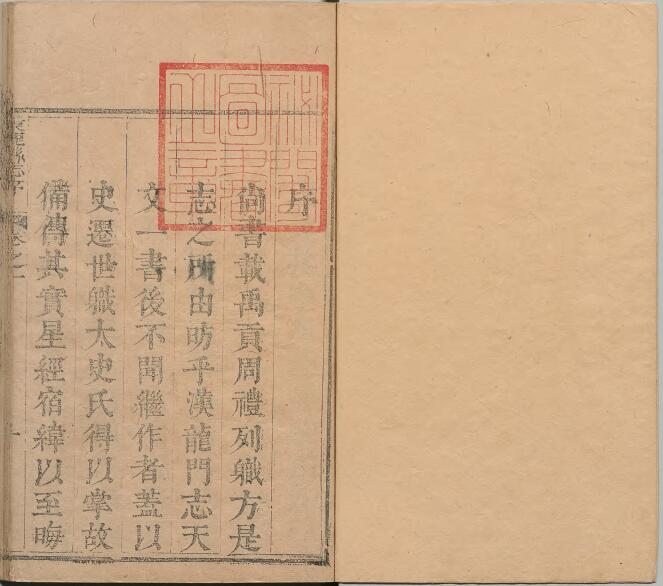 序
尙書載禹貢周禮列職方是
志之所由昉乎漢龍門志天
文一書後不聞繼作者蓋以
史遷世職太史氏得以掌故
備傳其實星經宿緯以至晦
縣志序
卷之一